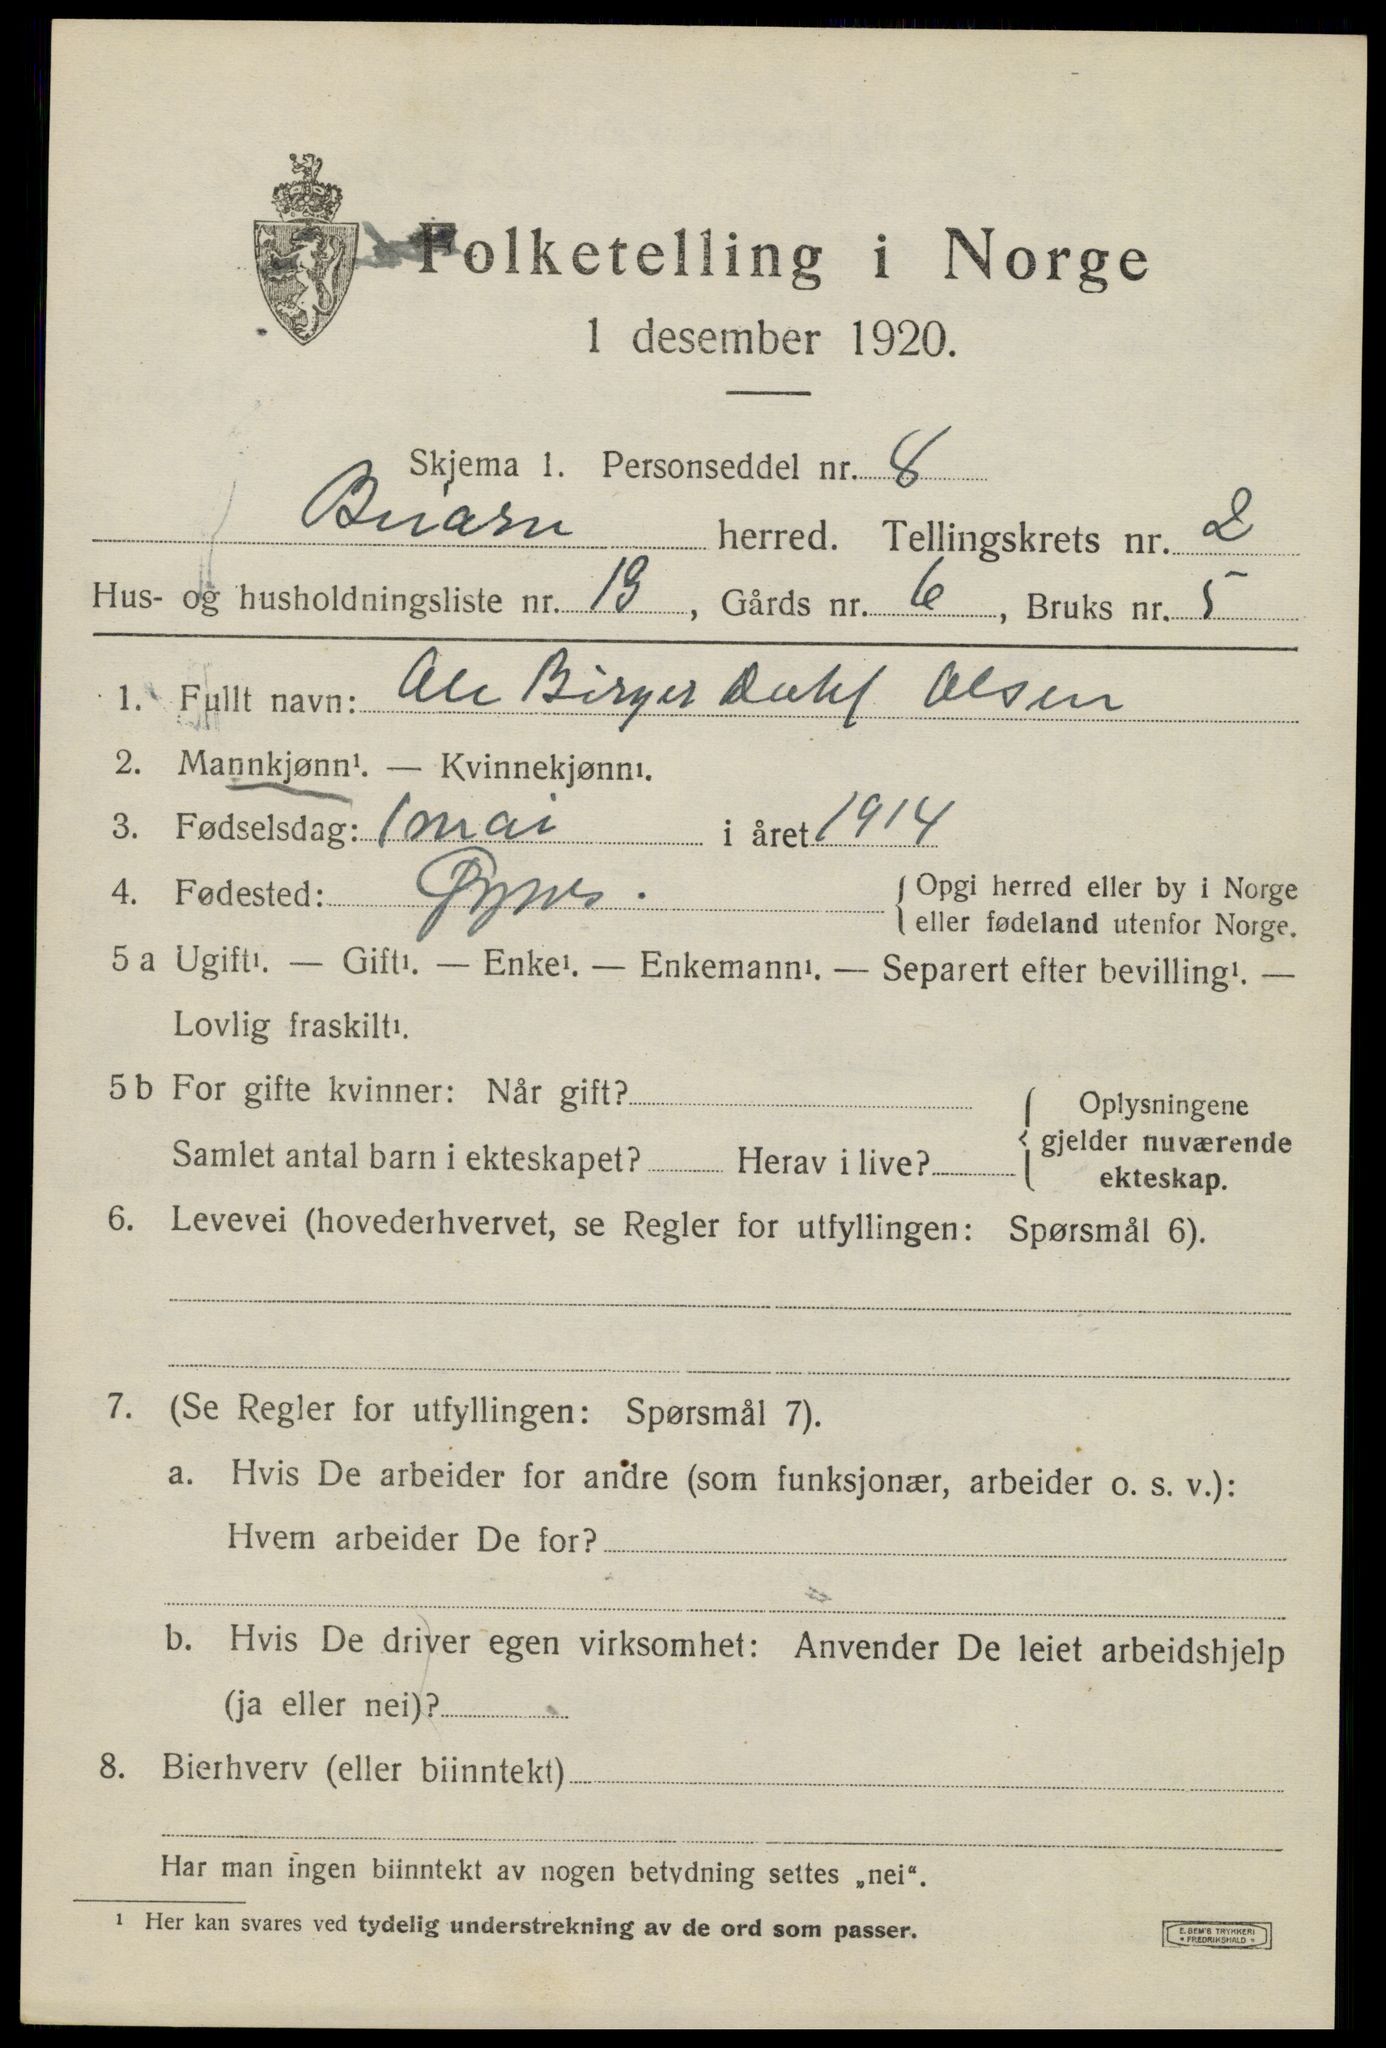 Folketelling i Norge
1 desember 1920.
Skjema 1. Personseddel nr. 8
Beiarn herred. Tellingskrets nr. 2
Hus- og husholdningsliste nr. 13, Gårds nr. 6, Bruks nr. 5
1. Fullt navn: Ole Birger Dahl Olsen
2. Mannkjønn¹. — Kvinnekjønn¹.
3. Fødselsdag: 1 mai i året 1914
4. Fødested: { Opgi herred eller by i Norge
eller fødeland utenfor Norge.
5 a Ugift¹. — Gift¹. — Enke¹. — Enkemann¹. — Separert efter bevilling¹. —
Lovlig fraskilt¹.
5 b For gifte kvinner: Når gift? { Oplysningene
Samlet antal barn i ekteskapet? Herav i live? gjelder nuværende
ekteskap.
6. Levevei (hovederhvervet, se Regler for utfyllingen: Spørsmål 6).
7. (Se Regler for utfyllingen: Spørsmål 7).
a. Hvis De arbeider for andre (som funksjonær, arbeider o. s. v.):
Hvem arbeider De for?
b. Hvis De driver egen virksomhet: Anvender De leiet arbeidshjelp
(ja eller nei)?
8. Bierhverv (eller biinntekt)
Har man ingen biinntekt av nogen betydning settes „nei“.
¹ Her kan svares ved tydelig understrekning av de ord som passer.
E. SEM'S TRYKKERI
* FREDRIKSHALD *